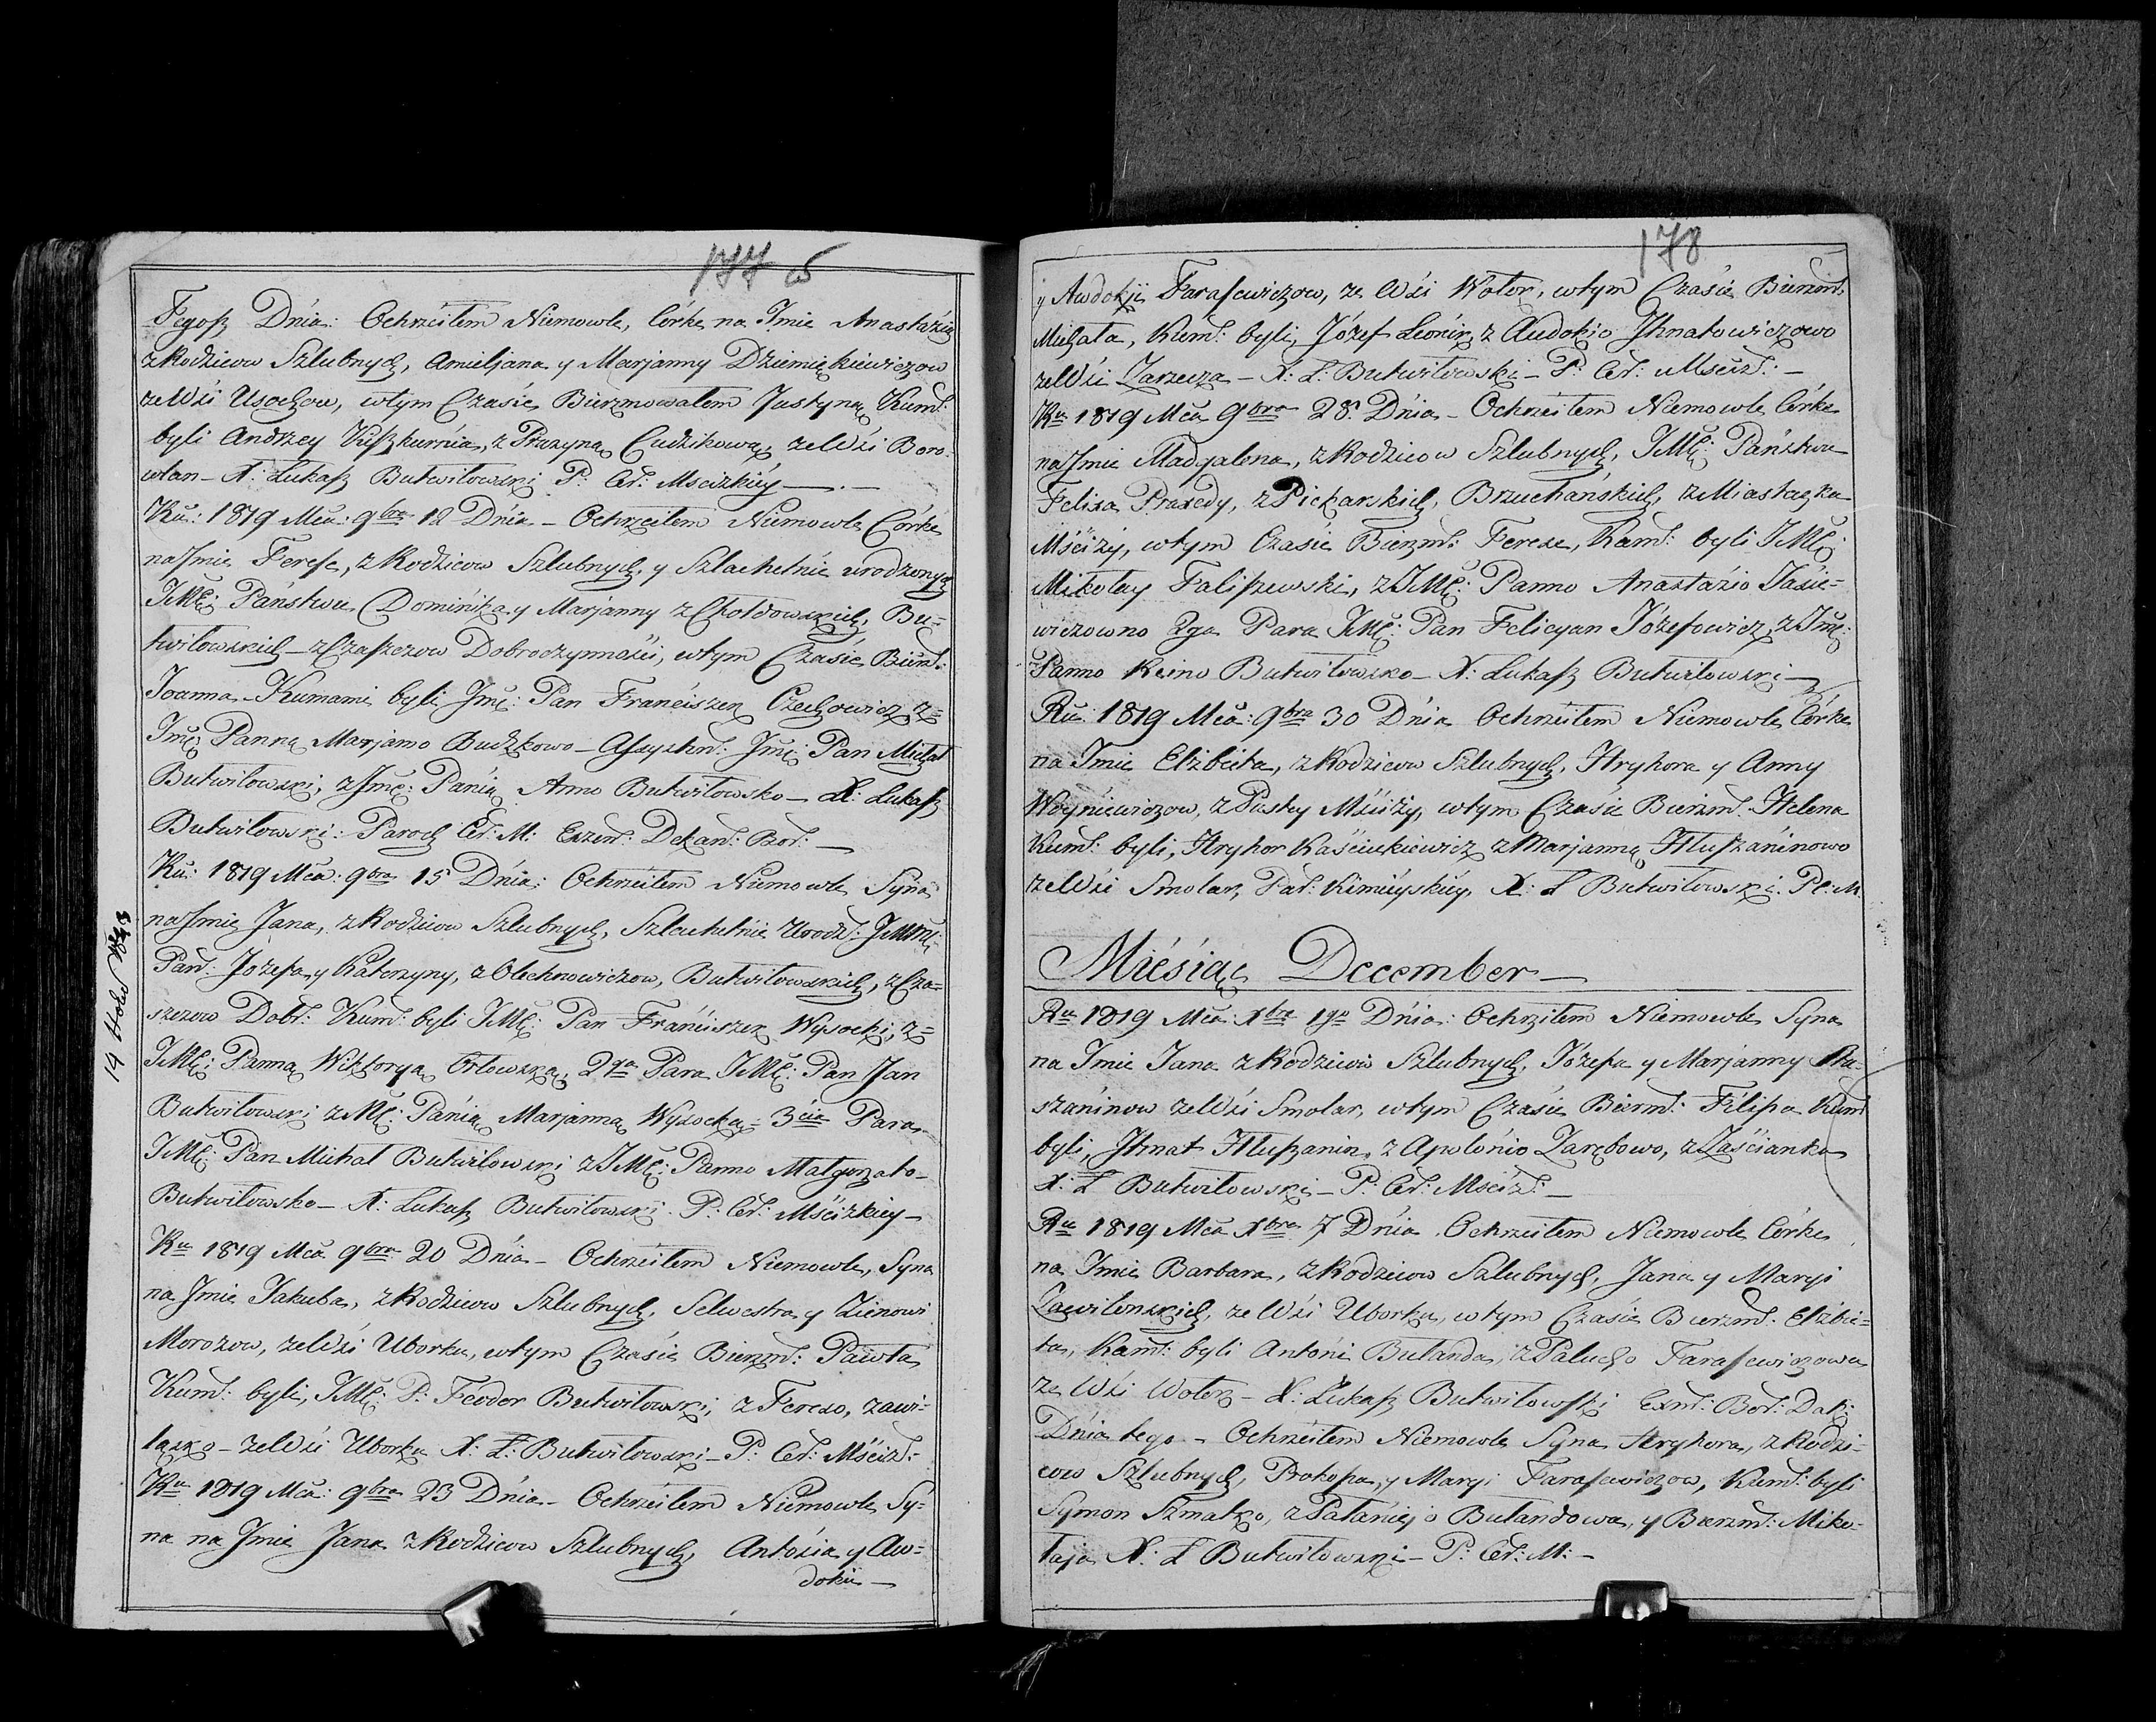 177
Tegosz Dnia: Ochrzciłem Niemowle, Córkę na Jmie Anastázią
z Rodzicow Szlubnych, Amiljana y Marjanny Dziemiękiewiczow
ze Wśi Usochow, wtym Czásie Bierzmowałem Justyną Kumł:
byli Andrzey z Prazyną Cudzikową ze Wśi Boro
wlan – X: Łukasz Butwiłowski P: Cer: Mscizkiey —
Ru: 1819 Mca: 9bra 12 Dnia – Ochrzciłem Niemowle Córkę
na Jmie Teresę, z Rodzicow Szlubnych, y Szlachetnie urodzonych
JMC: Państwu Dominika y Marjanny z Chołdowskich, Bu=
twiłowskich – z Czaszczow Dobroczynnośći, wtym Czásie Bierzm:
Joanna – Kumami byli Jmć: Pan Franciszek Czechowicz z=
Jmć: Panną Marjanno Budzkowo – Assystewł: Jmć: Pan Michał
Butwiłowski, z Jmć: Panią Anno Butwiłowsko – X: Łukasz
Butwiłowski: Paroch Cer: M: Exzem: Dekan: Bor: —
Ru: 1819 Mca: 9bra 15 Dnia: Ochrzciłem Niemowle Syna
na Jmie Jana, z Rodzicow Szlubnych, Szlachetnie Urodz: JMC:
Pan: Józefa y Katerzyny, z Olechnowiczow, Butwiłowskich, z Cza=
szczow Dobr: Kumł: byli JMC: Pan Franciszek Wysocki, z=
JMC: Panną Wiktoryą Orłowską, 2ga Para JMC: Pan Jan
Butwiłowski z MC: Panią Marjanną Wysocką = 3cia Para
JMC: Pan Michał Butwiłowski z JMC: Panno Małgorzato-
Butwiłowsko – X: Łukasz Butwiłowski P: Cer: Mścizkiey –
Ru 1819 Mca 9bra 20 Dnia – Ochrzciłem Niemowle, Syna
na Jmie Jakuba, z Rodzicow Szlubnych, Selwestra y Zienowi
Morozow, ze Wśi Uborku, wtym Czásie Bierzmł: Pawła
Kumł: byli, JMC: P: Teodor Butwiłowski, z Tereso, zawi-
ze Wśi Uborku X: Ł: Butwiłowski – P: Cer: Mścizk:
Ru 1819 Mca: 9bra 23 Dnia – Ochrzciłem Niemowle Sy=
na na Jmie Jana z Rodzicow Szlubnych, Antózia y Aw=
dokii —
178
y Awdokji Tarasewiczow, ze Wśi Wołok, wtym Czásie Bierzmł:
Michała, Kumł: byli, Józef Leonik z Audokio Jhnatowiczowo
ze Wśi Zarzecza – X: Ł: Butwiłowski – P: Cer: Mścizk: –
Ru 1819 Mca 9bra 28 Dnia – Ochrzciłem Niemowle Córkę
na Jmie Madgalena, z Rodzicow Szlubnych, JMC: Państwu
Felixa Praxedy, z Piekarskich, Bruchańskich, z Miasteczka
Mśćiży, wtym Czásie Bierzmł: Terese, Kumł: byli JMC:
Mikołay Faliszewski, z JMC: Panno Anastázio Jasie=
wiczowno 2ga Para JMC: Pan Felicyan Józefowicz, z Jmć:
Panno Reino Butwiłowsko – X: Łukasz Butwiłowski –
Ru: 1819 Mca: 9bra 30 Dnia Ochrzciłem Niemowle Córkę
na Jmie Elżbieta, z Rodzicow Szlubnych, Hryhora y Anny
Woyniewiczow, z Pustky Mśćiży, wtym Czásie Bierzmł. Helena
Kumł: byli, Hryhor Kaściukiewicz z Marjanną Hluszaninowo
ze Wśi Smolar, Par: Kimiyskiey, X: Ł Butwiłowski. P C: M.
Miésiąc December —
Ru 1819 Mca: Xbra 1go Dnia: Ochrzciłem Niemowle Syna
na Jmie Jana z Rodziców Szlubnych, Józefa y Marjanny
ze Wśi Smolar, wtym Czásie Bierzmł: Filipa Kumł
byli, Jhnat Hluszanin, z Apolónio Zarębowo, z Zaśćianka
X: Ł Butwiłowski – P: Cer: Mścizk: –
Ru 1819 Mca Xbra 7 Dnia Ochrzciłem Niemowle Córkę
na Jmie Barbara, z Rodzicow Szlubnych, Jana y Maryi
Zawilenskich, ze Wśi Uborku, wtym Czásie Bierzmł. Elżbie=
ta, Kumł: byli Antóni Bulanda, z Palucho Tarasewiczowa
ze Wśi Wołok – X: Łukasz Butwiłowski Exm: Bor: Dek:
Dnia tego – Ochrzciłem Niemowle Syna Hryhora, z Rodzi-
cow Szlubnych, Prokopa, y Maryi Tarasewiczow, Kumł: byli
Symon Szmatko, z Pałanieją Bulandowa, y Bierzmł: Miko-
łaja X: Ł Butwiłowski – P: Cer: M: –